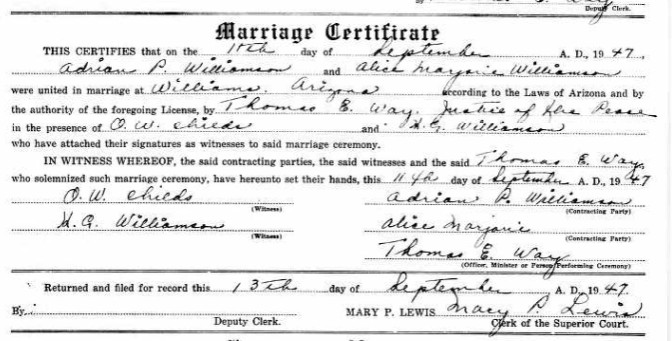 Deputy Clerk.
Marriage Certificate
THIS CERTIFIES that on the 11th day of September A. D., 1947.,
Adrian P. Williamson and Alice Marjorie Williamson
were united in marriage at Williams, Arizona according to the Laws of Arizona and by
the authority of the foregoing License, by Thomas E. Way, Justice of the Peace
in the presence of O. W. Childs and H. G. Williamson
who have attached their signatures as witnesses to said marriage ceremony.
IN WITNESS WHEREOF, the said contracting parties, the said witnesses and the said Thomas E. Way,
who solemnized such marriage ceremony, have hereunto set their hands, this 11th day of September A. D., 1947
O. W. Childs Adrian P. Williamson
(Witness) (Contracting Party)
H. G. Williamson Alice Marjorie
(Witness) (Contracting Party)
Thomas E. Way
(Officer, Minister or Person Performing Ceremony)
Returned and filed for record this 13th day of September A. D., 1947.
By MARY P. LEWIS Mary P. Lewis
Deputy Clerk. Clerk of the Superior Court.